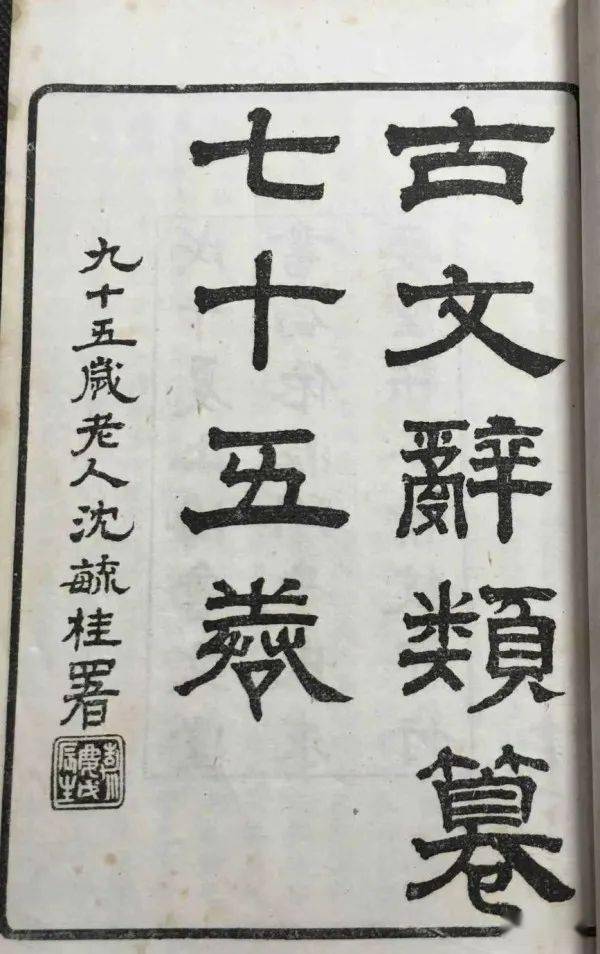 古文辭類篹
七十五卷
九十五歲老人沈毓桂署